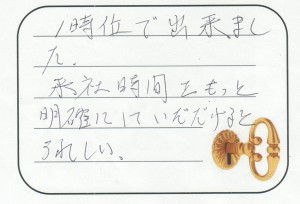 1時位で出来まし
た。
来社時間をもっと
明確にしていただけると
うれしい、